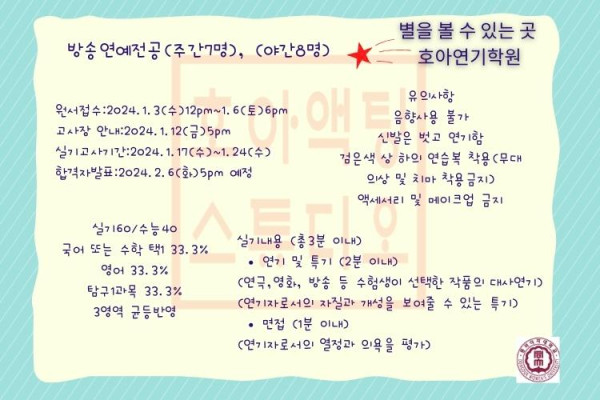 별을 볼 수 있는 곳
호아연기학원
방송연예전공(주간7명), (야간8명)
원서접수:2024.1.3(수)12pm~1.6(토)6pm
고사장 안내:2024.1.12(금)5pm
실기고사기간:2024.1.17(수)~1.24(수)
합격자발표:2024.2.6(화)5pm 예정
유의사항
음향사용 불가
신발은 벗고 연기함
검은색 상 하의 연습복 착용(무대
의상 및 치마 착용금지)
액세서리 및 메이크업 금지
실기60/수능40
국어 또는 수학 택1 33.3%
영어 33.3%
탐구1과목 33.3%
3영역 균등반영
실기내용 (총3분 이내)
• 연기 및 특기 (2분 이내)
(연극,영화, 방송 등 수험생이 선택한 작품의 대사연기)
(연기자로서의 자질과 개성을 보여줄 수 있는 특기)
• 면접 (1분 이내)
(연기자로서의 열정과 의욕을 평가)
호아액팅
스튜디오